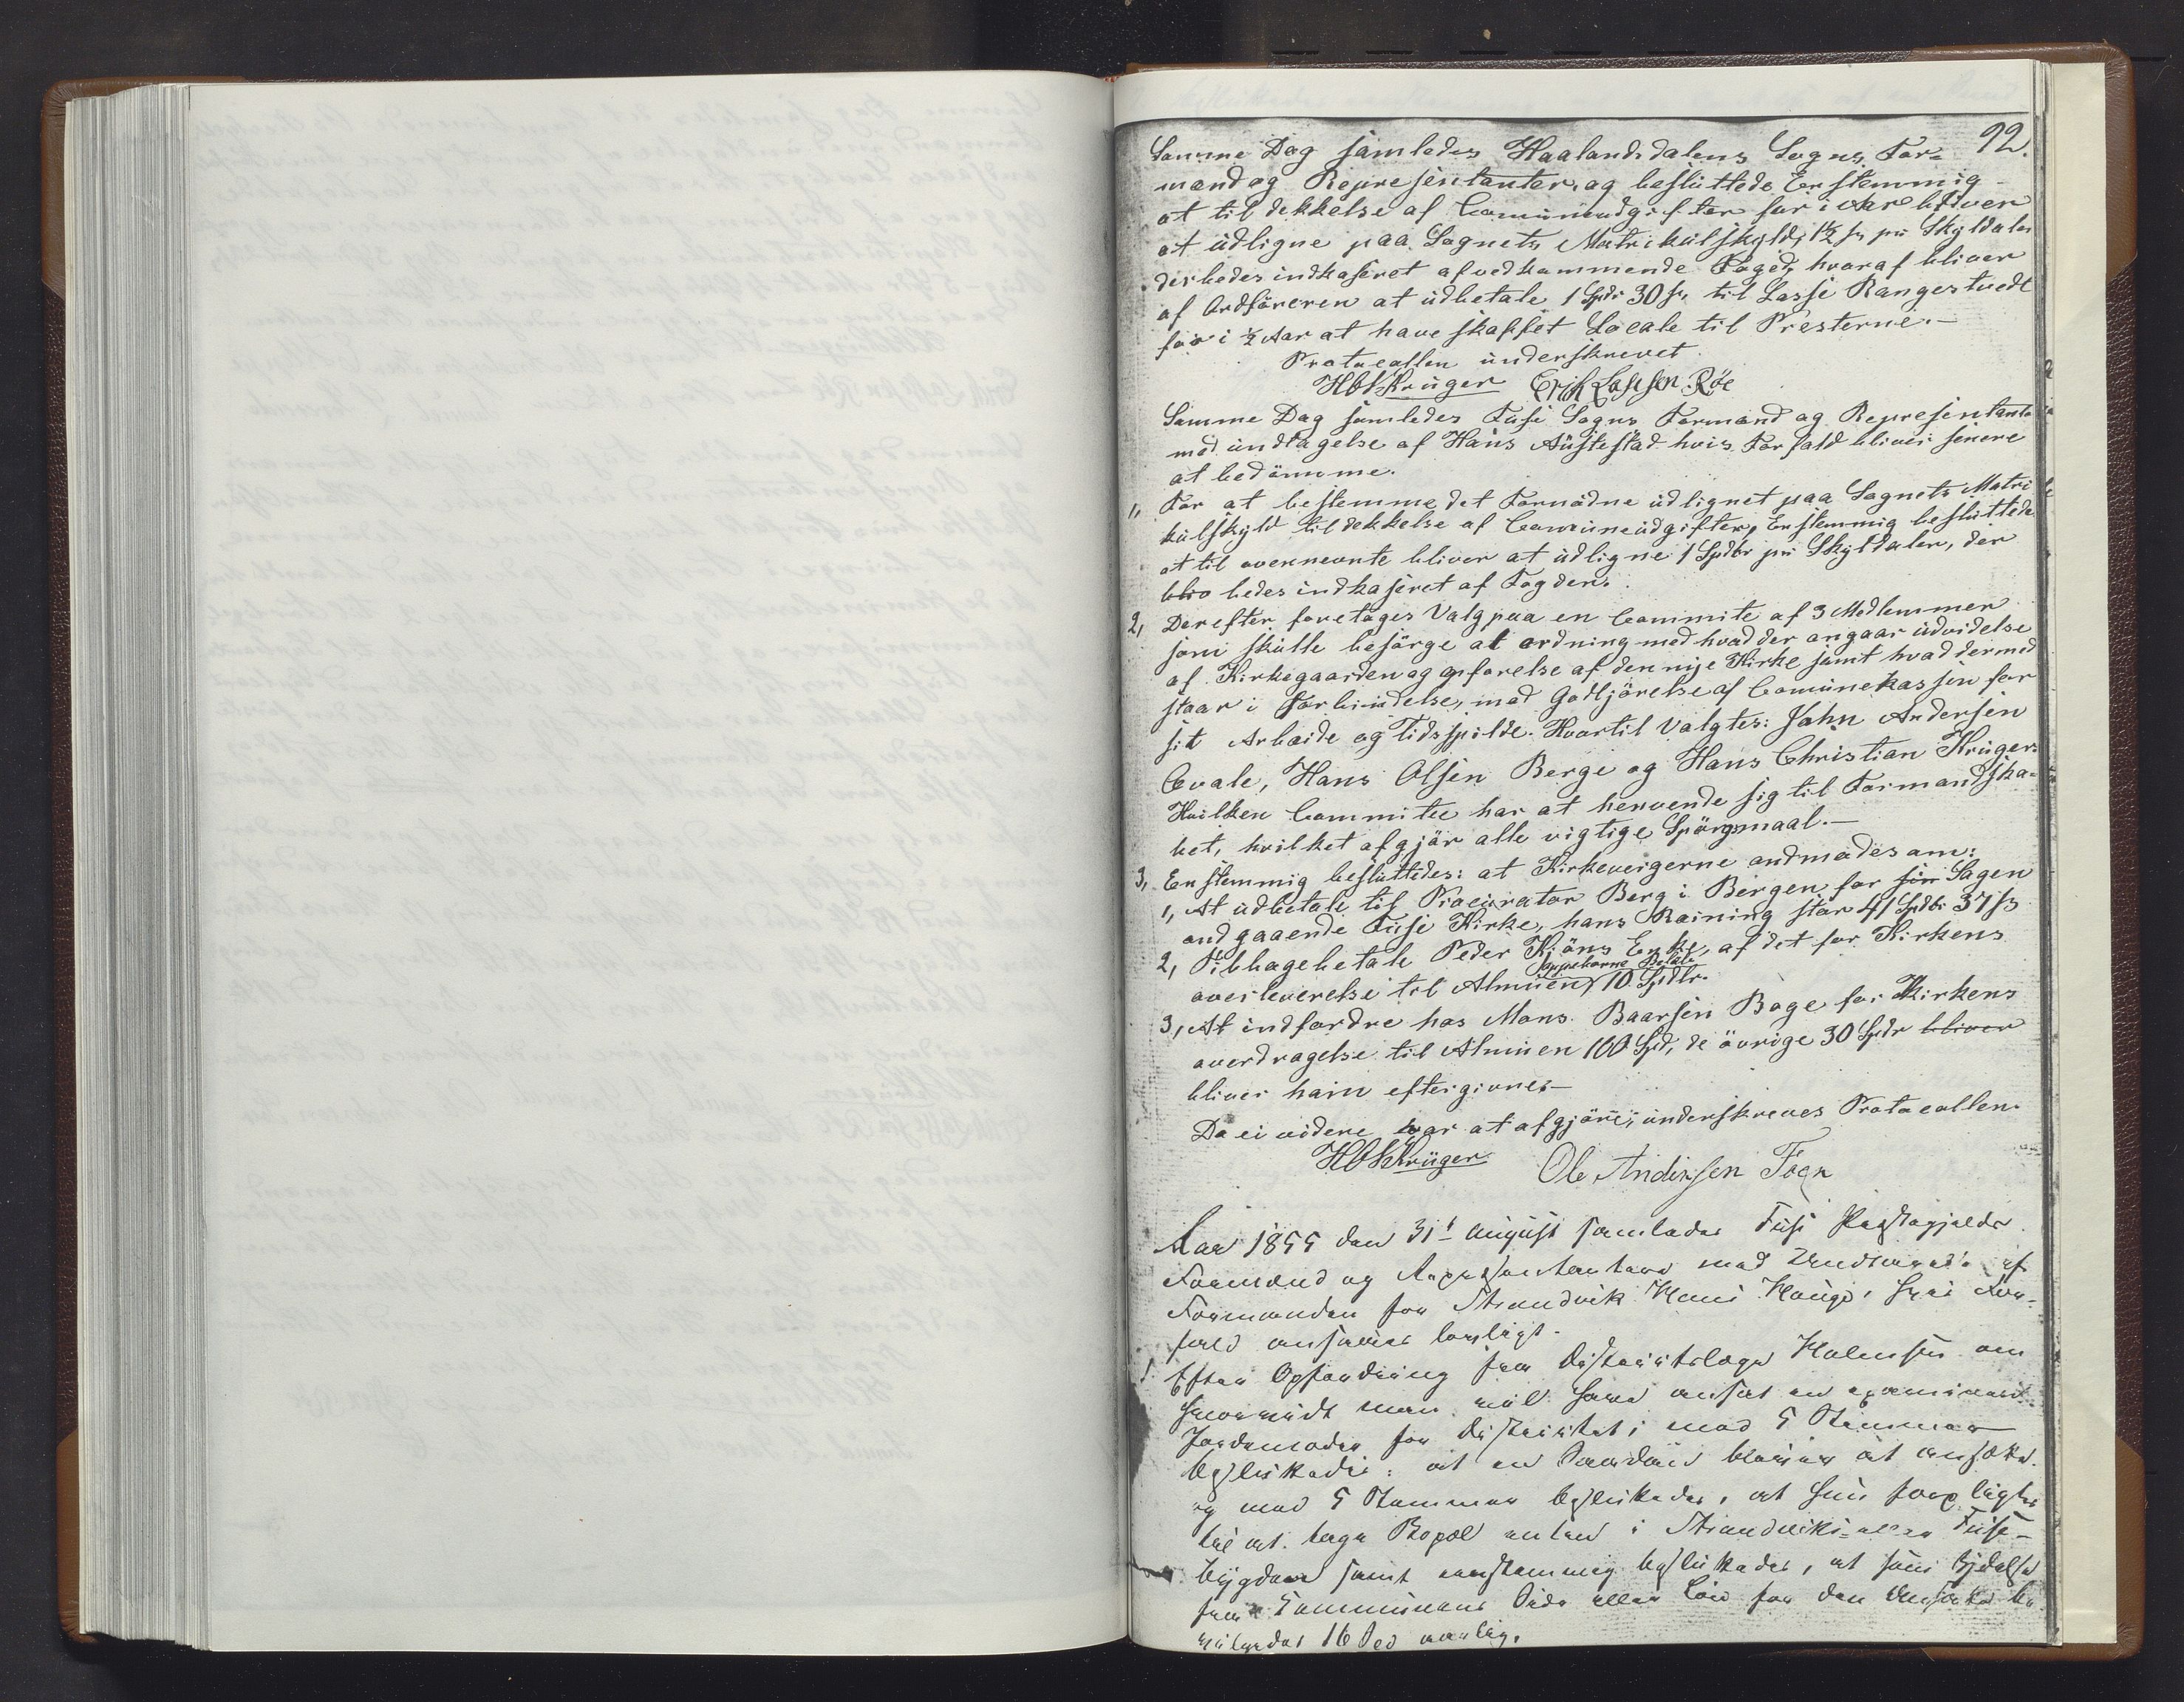 92.
Samme Dag samledes Haalandsdalens Sogns For-
mænd og Representanter, og besluttede Enstemmig
at til dekkelse af Comuneudgifter for i Aar bliver
at udligne paa Sognets Matrikulskyld; 1½ s pr Skyldaler
der bedes indkaseret af vedkommende Foged, hvoraf bliver
af Ordföreren at udbetale 1 Spdr 30 s, til Lasse Rangestvedt
for i ½ Aar at have skaffet Locale til Presterne.—
Protocollen underskrevet.
HCKrüger Erik Lassen Röe
Samme Dag samledes Fuse Sogns Formænd og Representante
med undtagelse af Hans Austestad hvis Forfald bliver senere
at bedömme.
1, For at bestemme det Fornödne udlignet paa Sognets Matri
kulskyld til dekkelse af Comuneudgifter, Enstemmig besluttede
at til ovennevnte bliver at udligne 1 Spdlr pr Skyldaler, der
bliv bedes indkaseret af Fogden.
2, Derefter foretages Valg paa en Commite af 3 Medlemmer
som skulle besörge al ordning med hvad der angaar udvidelse
af Kirkegaarden og opförelse af den nye Kirke samt hvad dermed
staar i Forbindelse, mod Godtjörelse af Comunekassen for
sit Arbeide og Tidsspilde. Hvortil Valgtes: John Andersen
Evale, Hans Olsen Berge og Hans Christian Krüger.
Hvilken Commitee har at henvende sig til Formandska-
bet, hvilket afgjör alle vigtige Spörgsmaal.—
3, Enstemmig besluttedes: at Kirkevergerne anmodes om:
1, At udbetale til Procurator Berg i Bergen for sin Sagen
andgaaende Fuse Kirke, hans Raining stor 41 Spdlr 37 s
2, Tilbagebetale Peder Kjöns Enke, af det for Kirkens
overleverelse til Almuen 10 Spdlr.
3, At indfordre hos Mons Baarsen Boge for Kirkens
overdragelse til Almuen 100 Spd, de övrige 30 Spdr bliver
bliver ham eftergivne.—
Da ei videre var at afgjöre, underskreves Protocollen.
HCKrüger Ole Andersen Toen
Aar 1855 den 31t August samledes Fuse Præstegjelds
Formænd og Repræsentantere med Undtagelse af
Formanden for Strandvik Hans Hauge, hvis For-
fald ansaaes lovligt.
1. Efter Opfordring fra Districtslæge Holmsen om
hvorvidt man vil have ansat en examineret
Jordemoder for Districtet; med 5 Stemmer
besluttedes: at en Saadan bliver at ansætte.
og med 5 Stemmer besluttedes, at hun forpligtes
til at tage Bopæl enten i Strandviks- eller Fuse-
bygden samt eenstemmig besluttedes, at som Hjelp
fra Communens Side eller Løn for den Ansatte be
vilgedes 16 Spd aarlig.